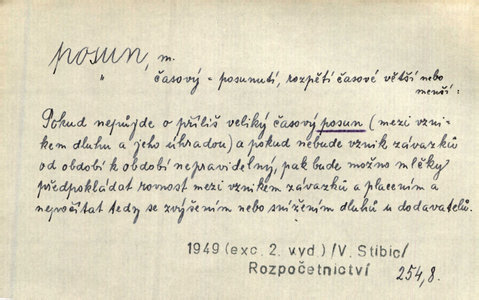 posun, m.
" časový - posunutí, rozpětí časové větší nebo
menší:
Pokud nepůjde o příliš veliký časový posun (mezi vzni-
kem dluhu a jeho úhradou) a pokud nebude vznik závazků
od období k období nepravidelný, pak bude možno mlčky
předpokládat rovnost mezi vznikem závazků a placením a
nepočítat tedy se zvýšením nebo snížením dluhů u dodavatelů.
1949 (exc. 2. vyd) /V. Stibic/
Rozpočetnictví 254,8.